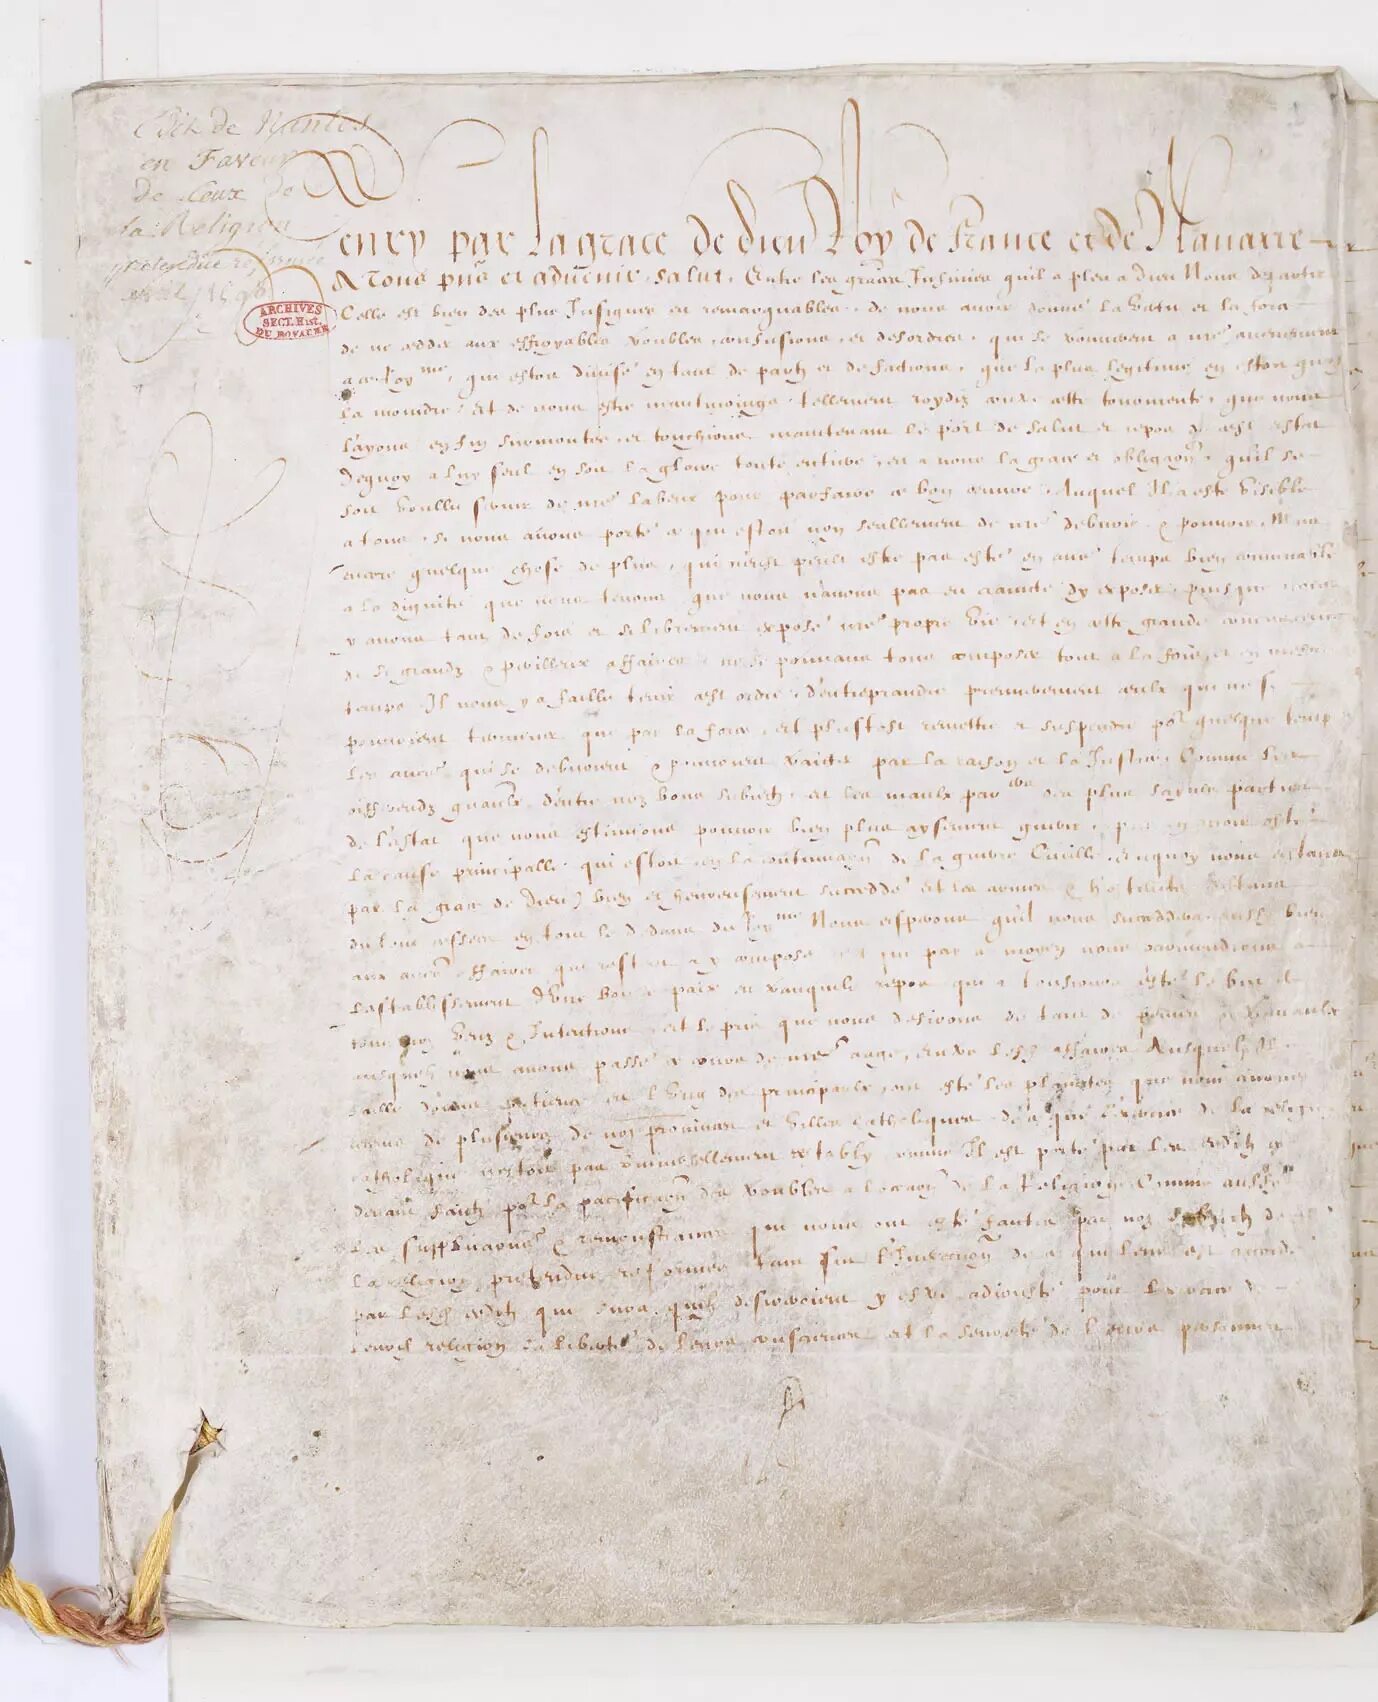 Edit de Nantes
en Faveur
de Ceux de
la Religion
pretendue reformée
Avril 1598
ARCHIVES
SECT. Hist.
DU ROYAUME
Henry par la grace de dieu Roy de France et de Nauarre
A Tous pns et aduenir salut. Entre les graces Infinies quil a pleu a Dieu Nous departir
Celle est bien des plus Insignes et remarquables, de nous auoir donné la vertu et la force
de ne cedder aux effroyables troubles, confusions, et desordres, qui se trouuerent a nre aduenement
a ce Roy.me, qui estoit diuisé en tant de partz et de factions, que la plus legitime en estoit quasi
la moindre, Et de nous estre neantmoings tellement roydiz contre ceste tourmente, que nous
layons enfin surmontée, et touchions maintenant le port de salut et repos de cest estat
Dequoy a luy seul en soit la gloire toute entiere, et a nous la grace et obligaon, quil se
soit voullu seruir de nre labeur pour parfaire ce bon oeuure, Auquel Il a esté visible
a tous, si nous auons porté ce qui estoit non seullement de nre debuoir & pouuoir, Mais
encore quelque chose de plus, qui neust peult estre pas esté en autre temps bien conuenable
a la dignité que nous tenons, que nous nauons pas eu craincte dy exposer, puis que nous
y auons tant de fois et si librement exposé nre propre vie, Et en ceste grande concurrence
de si grandz & perilleux affaires ne se pouuans tous composer tout a la fois et en mesme
temps Il nous y a faillu tenir cest ordre, dentreprandre premierement ceulx qui ne se
pouuoient terminer que par la force, et plustost remettre et suspendre por quelque temps
les autres qui se debuoient & pouuoient traicter par la raison et la Justice, Comme les
differendz generaulx dentre noz bons subiectz, et les maulx par.ers des plus saynes parties
de lestat que nous estimions pouuoir bien plus aysement guerir, apres en auoir osté
la cause principalle, qui estoit en la continuaon de la guerre Ciuille, Enquoy nous estant
par la grace de Dieu, bien et heureusement succeddé et les armes & hostilitez estans
du tout cessées en tout le dedans du Roy.me Nous esperons quil nous succeddera aussi bien
aux autres affaires qui restent a y composer et que par ce moyen nous paruiendrons a
lestablissement dune bonne paix et tranquille repos qui a tousiours esté le but de
tous noz veuz & Intentions, et le pris que nous desirons de tant de peines & trauaulx
ausquelz nous auons passé ce cours de nre aage, Entre lesd. affaires Ausquelz Il
fallu donner patience et l'Ung des principaulx ont esté les plainctes que nous auons
receues de plusieurs de noz prouinces et villes catholiques, de ce que lexercice de la religion
catholique nestoit pas vniuersellement restably comme Il est porté par les Edictz cy
deuant faictz por la pacificaon des troubles a loccaon de la Religion, Comme aussi
les supplicaons & remonstrances qui nous ont esté faictes par noz subiectz de
la religion pretendue reformée, tant sur l'Inexecuon de ce qui leur est accordé
par lesd. edictz que sur ce quilz desireroient y estre adiousté pour lexercice de
leurd. religion, la liberté de leurs consciences, et la seureté de leurs personnes